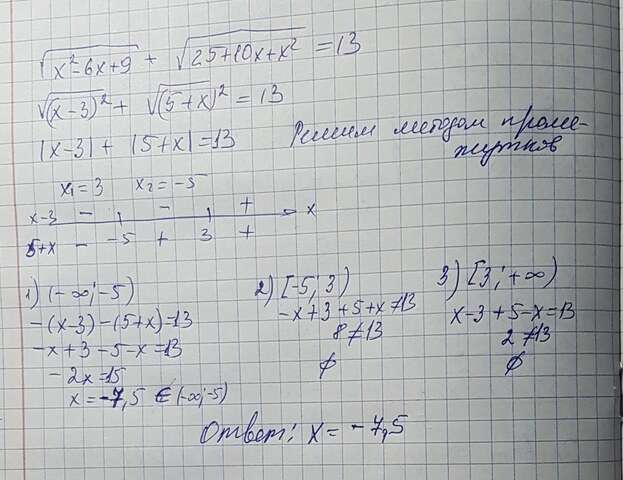 √(x²-6x+9) + √(25+10x+x²) = 13
√(x-3)² + √(5+x)² = 13
|x-3| + |5+x| = 13 Решим методом проме-
жутков
x₁=3 x₂=-5
x-3 - - + x
5+x - -5 + 3 +
1) (-∞;-5)
-(x-3)-(5+x)=13
-x+3-5-x=13
-2x=15
x=-7,5 ∈ (-∞;-5)
2) [-5; 3)
-x+3+5+x≠13
8≠13
∅
3) [3;+∞)
x-3+5-x=13
2≠13
∅
Ответ: x=-7,5